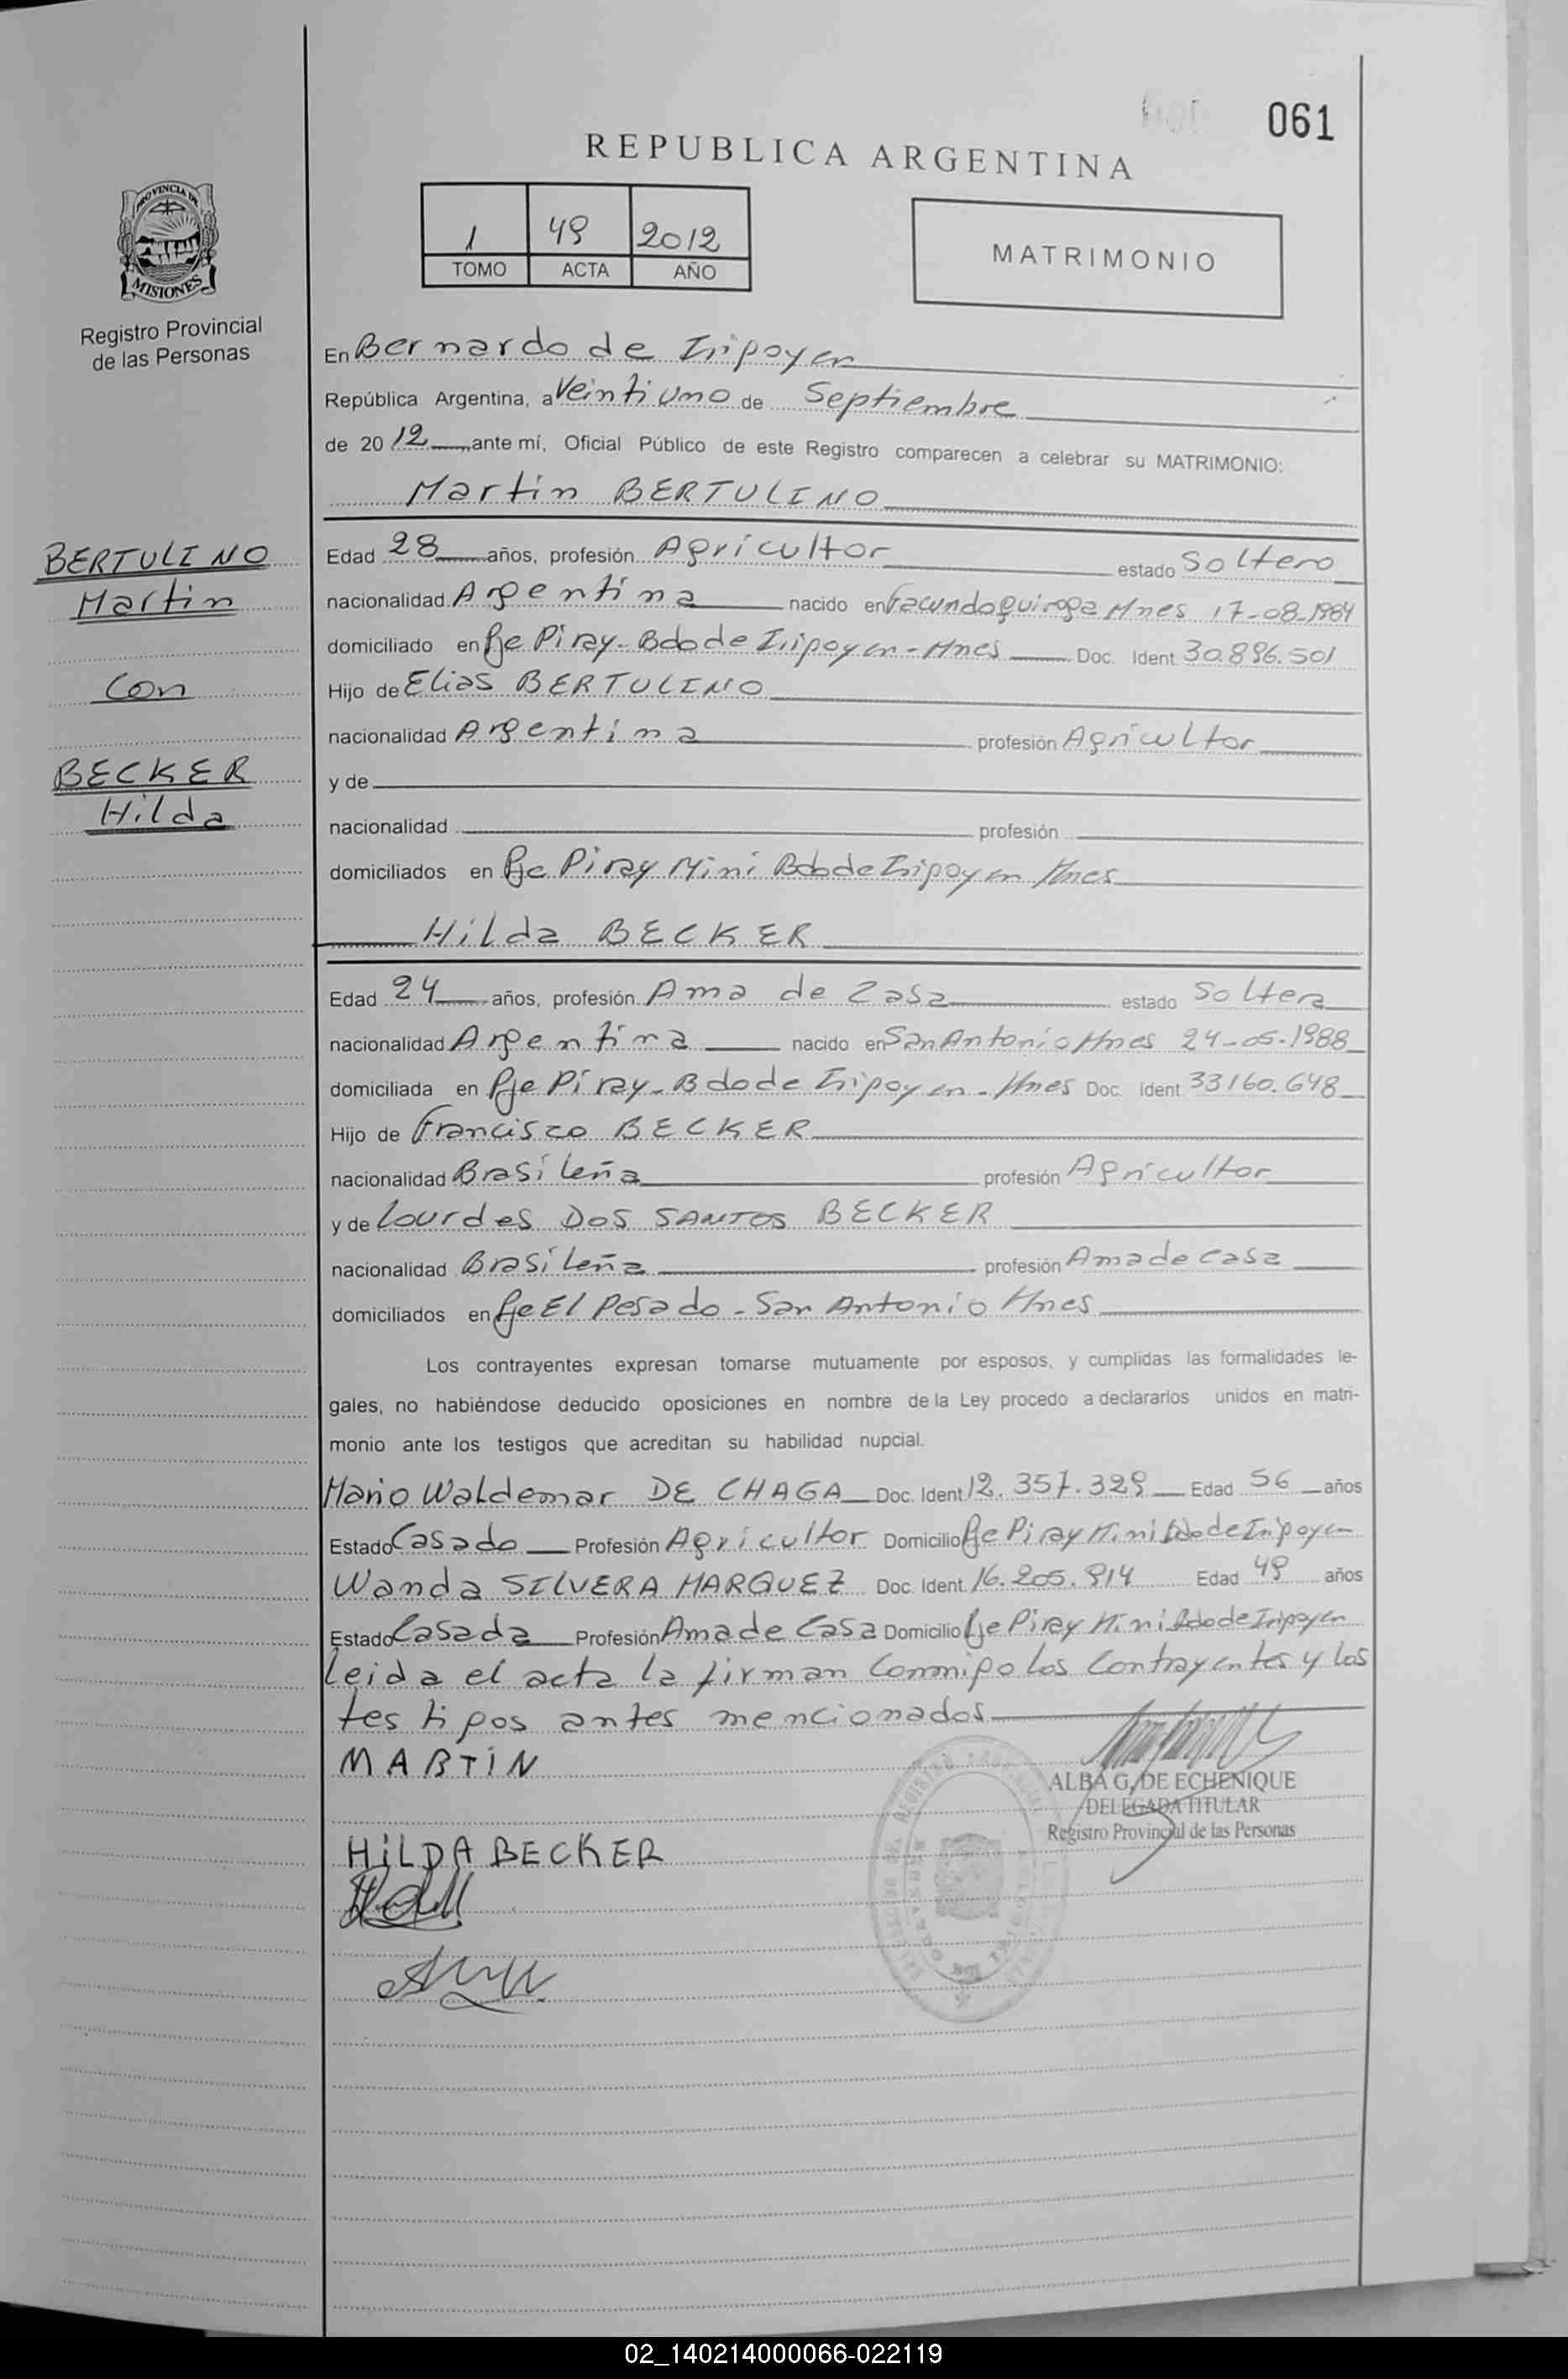 061
REPUBLICA ARGENTINA
PROVINCIA DE
MISIONES
Registro Provincial
de las Personas
1 49 2012
TOMO ACTA AÑO
MATRIMONIO
En Bernardo de Irigoyen
República Argentina, a Veintiuno de Septiembre
de 2012 ante mí, Oficial Público de este Registro comparecen a celebrar su MATRIMONIO:
Martin BERTULINO
BERTULINO
Martin
con
BECKER
Hilda
Edad 28 años, profesión Agricultor estado Soltero
nacionalidad Argentina nacido en Facundo Quiroga Mnes 17-08-1984
domiciliado en Pje Piray- Bdo de Irigoyen - Mnes Doc. Ident. 30.896.501
Hijo de Elias BERTULINO
nacionalidad Argentina profesión Agricultor
y de
nacionalidad profesión
domiciliados en Pje Piray Mini Bdo de Irigoyen Mnes
Hilda BECKER
Edad 24 años, profesión Ama de Casa estado Soltera
nacionalidad Argentina nacido en San Antonio Mnes 24-05-1988
domiciliada en Pje Piray- Bdo de Irigoyen - Mnes Doc. Ident. 33160.648
Hijo de Francisco BECKER
nacionalidad Brasileña profesión Agricultor
y de Lourdes DOS SANTOS BECKER
nacionalidad Brasileña profesión Ama de Casa
domiciliados en Pje El Pesado - San Antonio Mnes
Los contrayentes expresan tomarse mutuamente por esposos, y cumplidas las formalidades le-
gales, no habiéndose deducido oposiciones en nombre de la Ley procedo a declararlos unidos en matri-
monio ante los testigos que acreditan su habilidad nupcial.
Mario Waldemar DE CHAGA Doc. Ident. 12.357.329 Edad 56 años
Estado Casado Profesión Agricultor Domicilio Pje Piray Mini Bdo de Irigoyen
Wanda SILVERA MARQUEZ Doc. Ident. 16.205.914 Edad 49 años
Estado Casada Profesión Ama de Casa Domicilio Pje Piray Mini Bdo de Irigoyen
Leida el acta la firman conmigo los contrayentes y los
testigos antes mencionados
MARTIN
ALBA G. DE ECHENIQUE
DELEGADA TITULAR
Registro Provincial de las Personas
HILDA BECKER
02_140214000066-022119